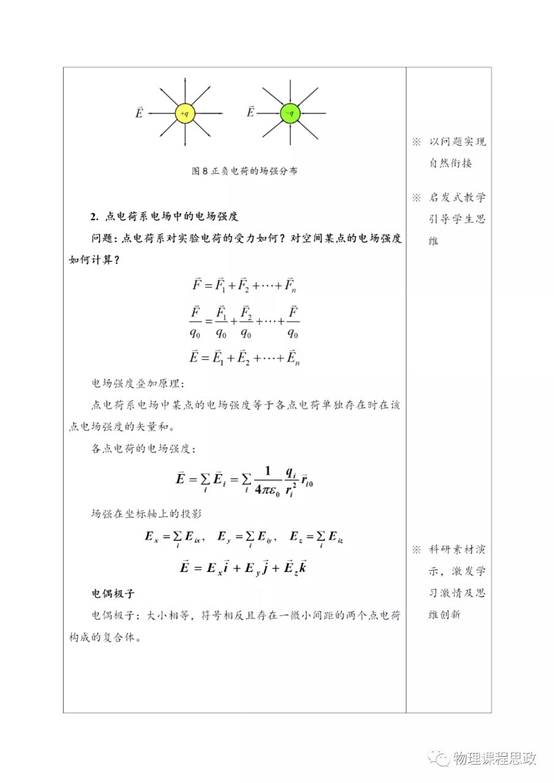 E⃗ +q E⃗ -q
图8 正负电荷的场强分布
2. 点电荷系电场中的电场强度
问题:点电荷系对实验电荷的受力如何?对空间某点的电场强度
如何计算?
F⃗ = F⃗₁ + F⃗₂ + ⋯ + F⃗ₙ
F⃗/q₀ = F⃗₁/q₀ + F⃗₂/q₀ + ⋯ + F⃗/q₀
E⃗ = E⃗₁ + E⃗₂ + ⋯ + E⃗ₙ
电场强度叠加原理:
点电荷系电场中某点的电场强度等于各点电荷单独存在时在该
点电场强度的矢量和。
各点电荷的电场强度:
E⃗ = ∑ᵢ E⃗ᵢ = ∑ᵢ 1/(4πε₀) qᵢ/rᵢ² r⃗ᵢ₀
场强在坐标轴上的投影
Eₓ = ∑ᵢ Eᵢₓ, E_y = ∑ᵢ E_iy, E_z = ∑ᵢ E_iz
E⃗ = Eₓi⃗ + E_y j⃗ + E⃗_z k⃗
电偶极子
电偶极子:大小相等,符号相反且存在一微小间距的两个点电荷
构成的复合体。
※ 以问题实现
自然衔接
※ 启发式教学
引导学生思
维
※ 科研素材演
示,激发学
习激情及思
维创新
物理课程思政